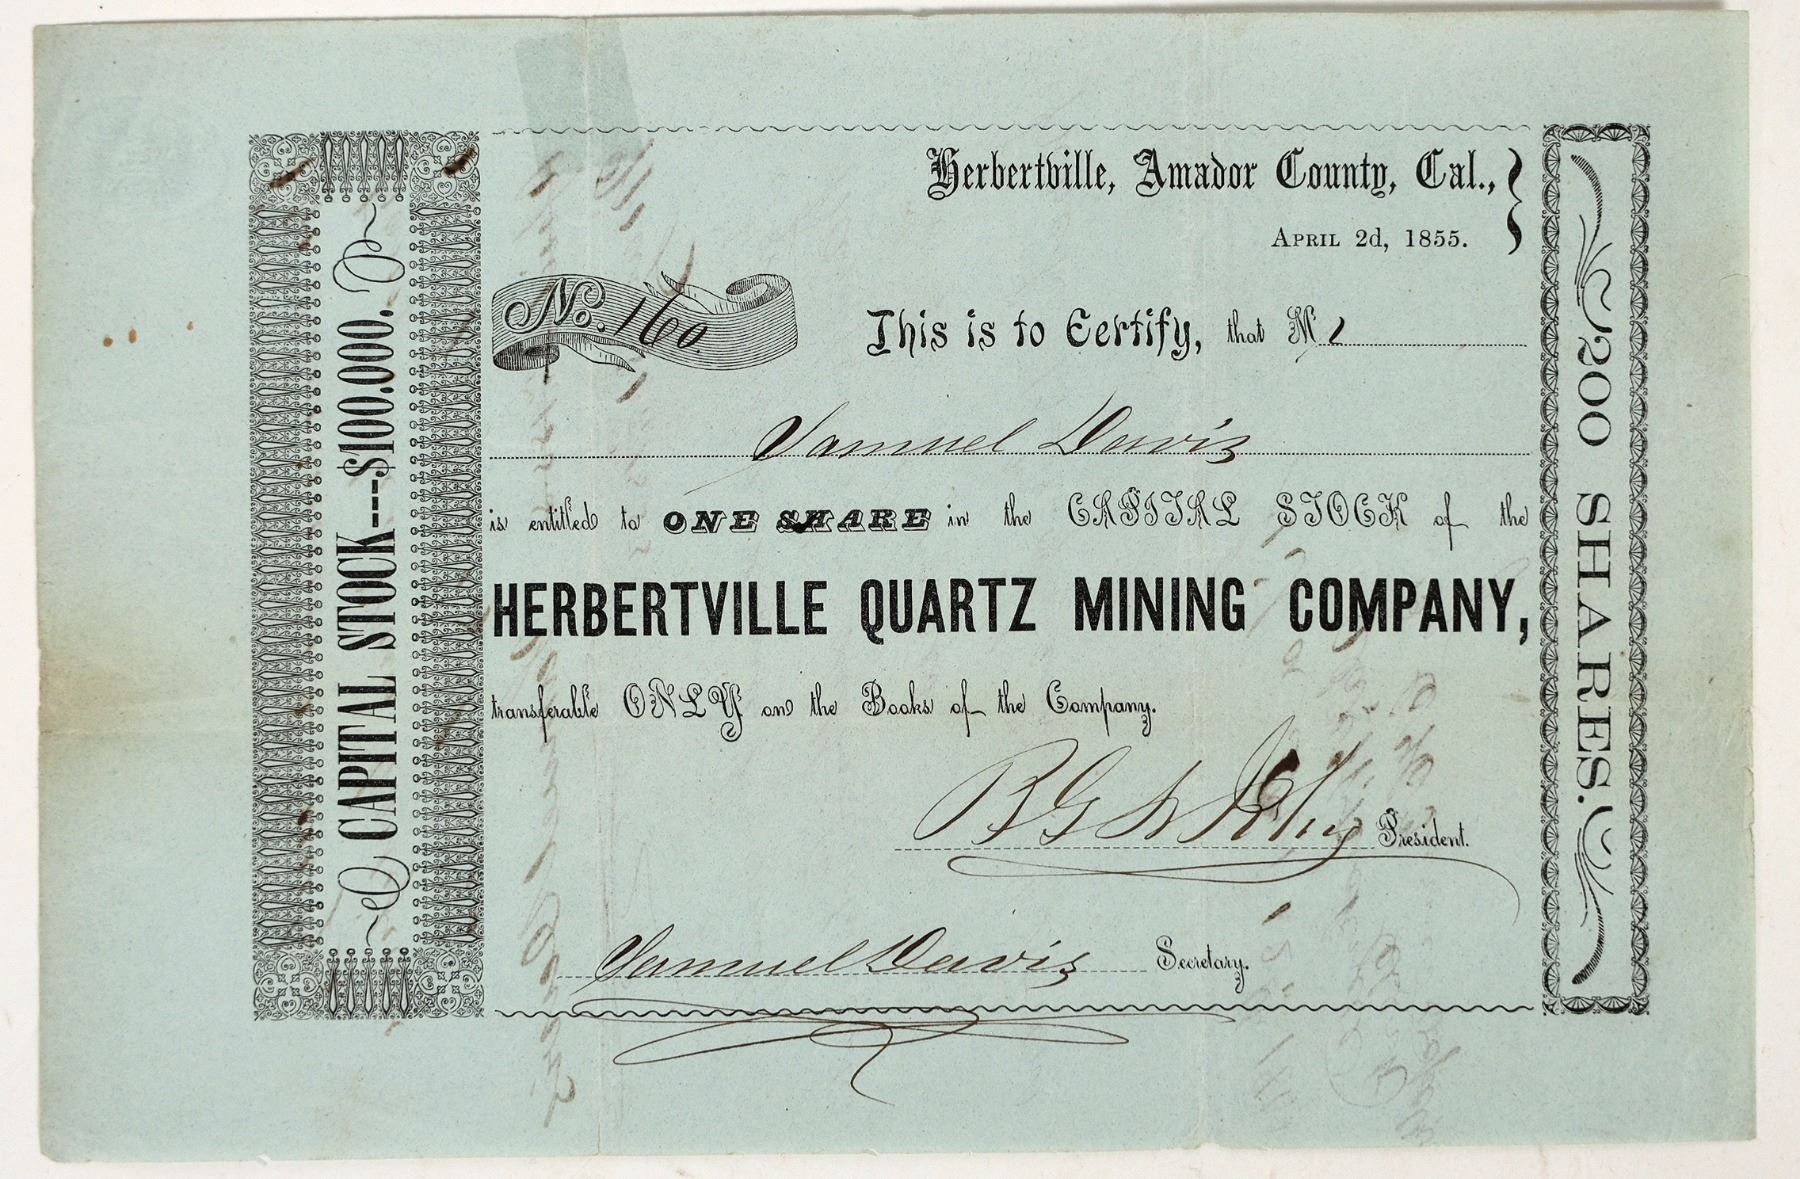 Herbertville, Amador County, Cal.,
April 2d, 1855.
No. 160.
This is to Certify, that Mr
Samuel Davis
is entitled to ONE SHARE in the CAPITAL STOCK of the
HERBERTVILLE QUARTZ MINING COMPANY,
transferable ONLY on the Books of the Company.
President.
Samuel Davis Secretary.
CAPITAL STOCK---$100.000.
200 SHARES.